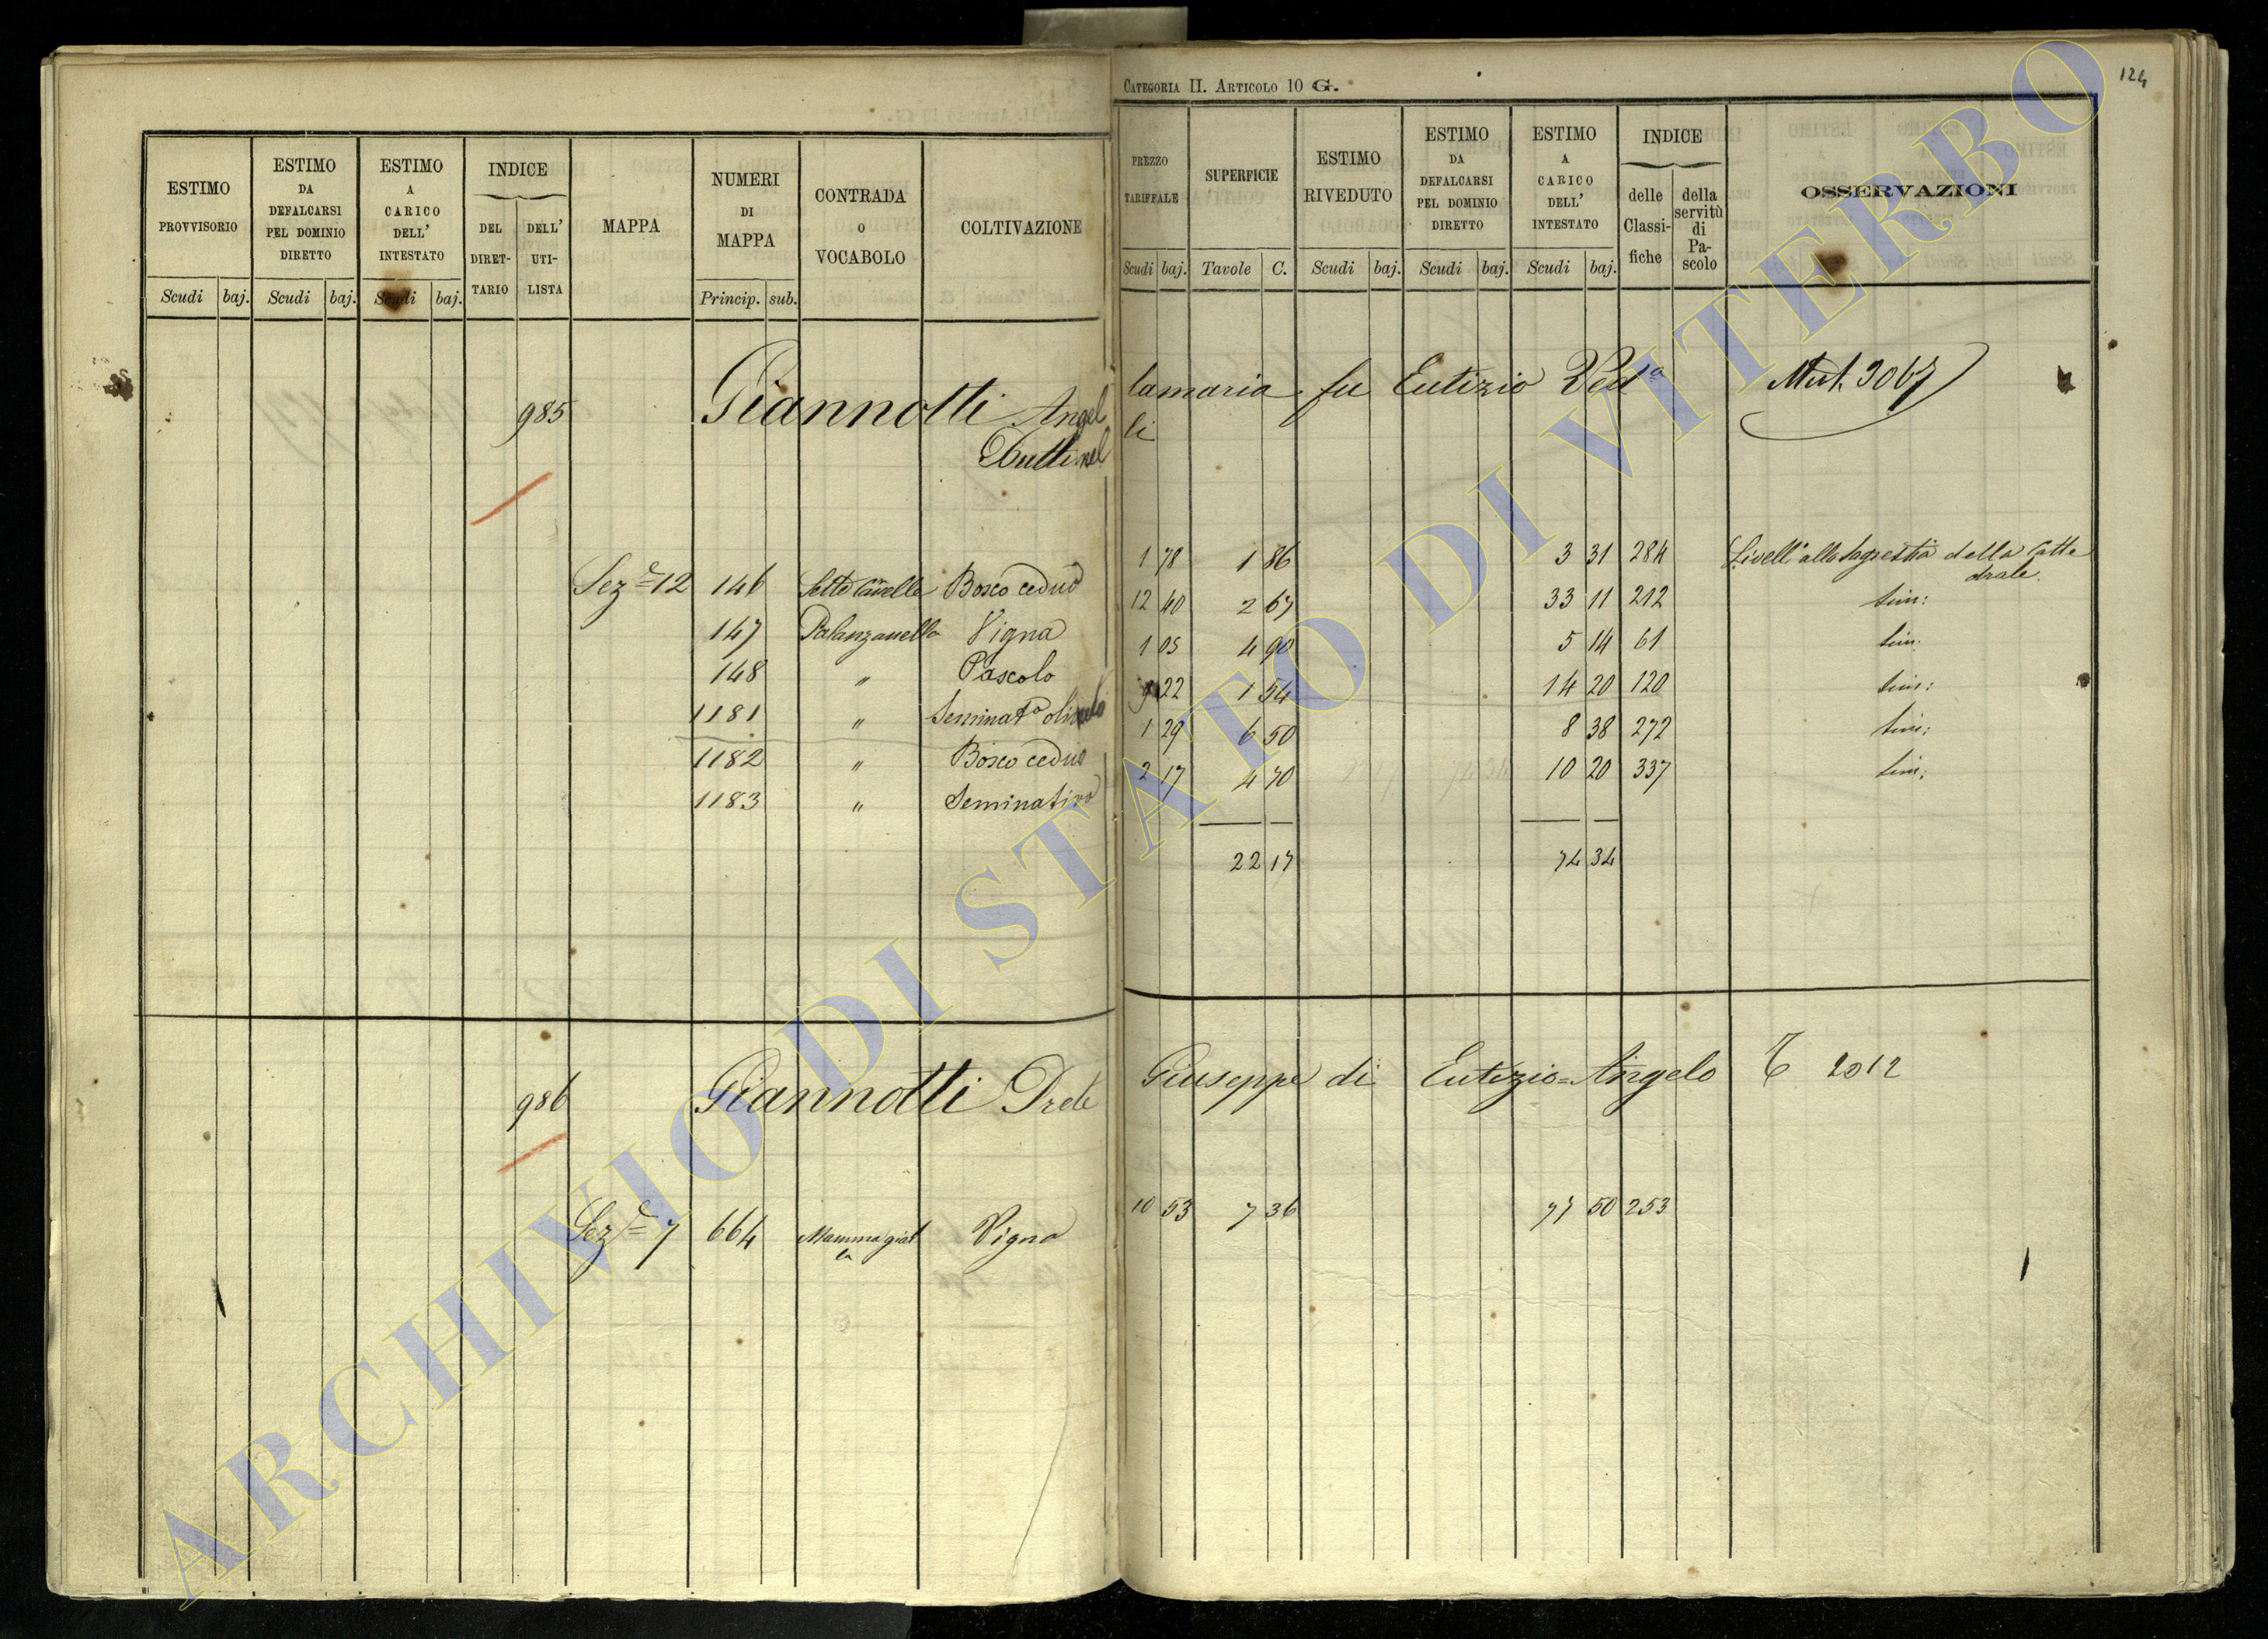 CATEGORIA II. ARTICOLO 10 G.
124
ESTIMO PROVVISORIO
ESTIMO DA DEFALCARSI PEL DOMINIO DIRETTO
ESTIMO A CARICO DELL' INTESTATO
INDICE
DEL DIRET-TARIO
DELL' UTI-LISTA
MAPPA
NUMERI DI MAPPA
CONTRADA O VOCABOLO
COLTIVAZIONE
PREZZO TARIFFALE
SUPERFICIE
ESTIMO RIVEDUTO
ESTIMO DA DEFALCARSI PEL DOMINIO DIRETTO
ESTIMO A CARICO DELL' INTESTATO
INDICE
delle Classi-fiche
della servitù di Pa-scolo
OSSERVAZIONI
Scudi baj. Scudi baj. Scudi baj. Princip. sub.
Scudi baj. Tavole C. Scudi baj. Scudi baj. Scudi baj.
985 Giannotti Angel lamaria fu Eutizio Ved.a Mut. 3067
li
Sez.e 12 146 Sette Cannelle Bosco ceduo 1 78 1 86 3 31 284 Livell.o alla Sagrestia della Catte
drale
147 Palanzanella Vigna 12 40 2 67 33 11 212 sim:
148 " Pascolo 1 05 4 90 5 14 61 sim:
1181 " Seminat.o olivato 9 22 1 54 14 20 120 sim:
1182 " Bosco ceduo 1 29 6 50 8 38 272 sim:
1183 " Seminativo 2 17 4 70 10 20 337 sim:
22 17 74 34
986 Giannotti Prete Giuseppe di Eutizio=Angelo T 2012
Sez.e 7 664 Mammagial 
la Vigna 10 53 7 36 77 50 253
ARCHIVIO DI STATO DI VITERBO